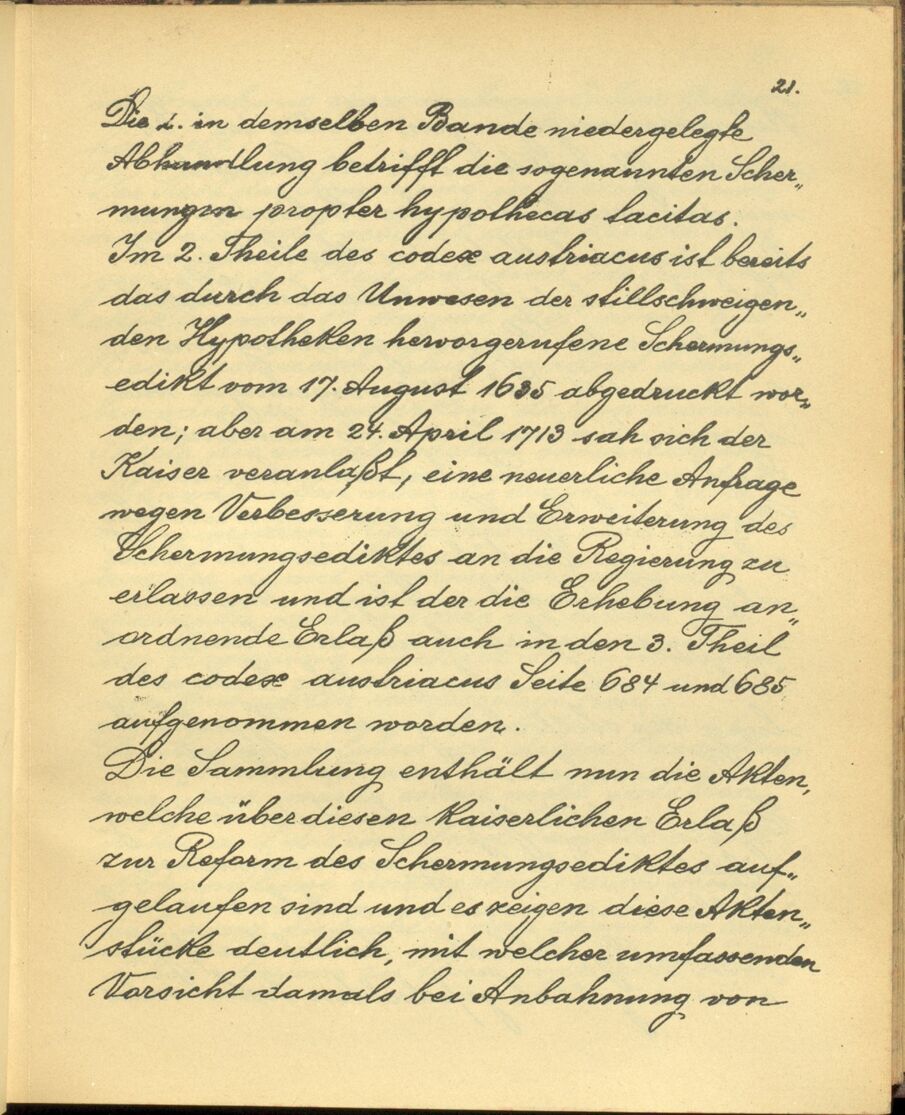 21.
Die 2. in demselben Bande niedergelegte
Abhandlung betrifft die sogenannten Scher„
mungen propter hypothecas tacitas.
Im 2. Theile des codex austriacus ist bereits
das durch das Unwesen der stillschweigen„
den Hypotheken hervorgerufene Schermungs„
edikt vom 17. August 1635 abgedruckt wor„
den; aber am 24. April 1713 sah sich der
Kaiser veranlaßt, eine neuerliche Anfrage
wegen Verbesserung und Erweiterung des
Schermungsediktes an die Regierung zu
erlassen und ist der die Erhebung an„
ordnende Erlaß auch in den 3. Theil
des codex austriacus Seite 684 und 685
aufgenommen worden.
Die Sammlung enthält nun die Akten,
welche über diesen Kaiserlichen Erlaß
zur Reform des Schermungsediktes auf„
gelaufen sind und es zeigen diese Akten„
stücke deutlich, mit welcher umfassenden
Vorsicht damals bei Anbahnung von